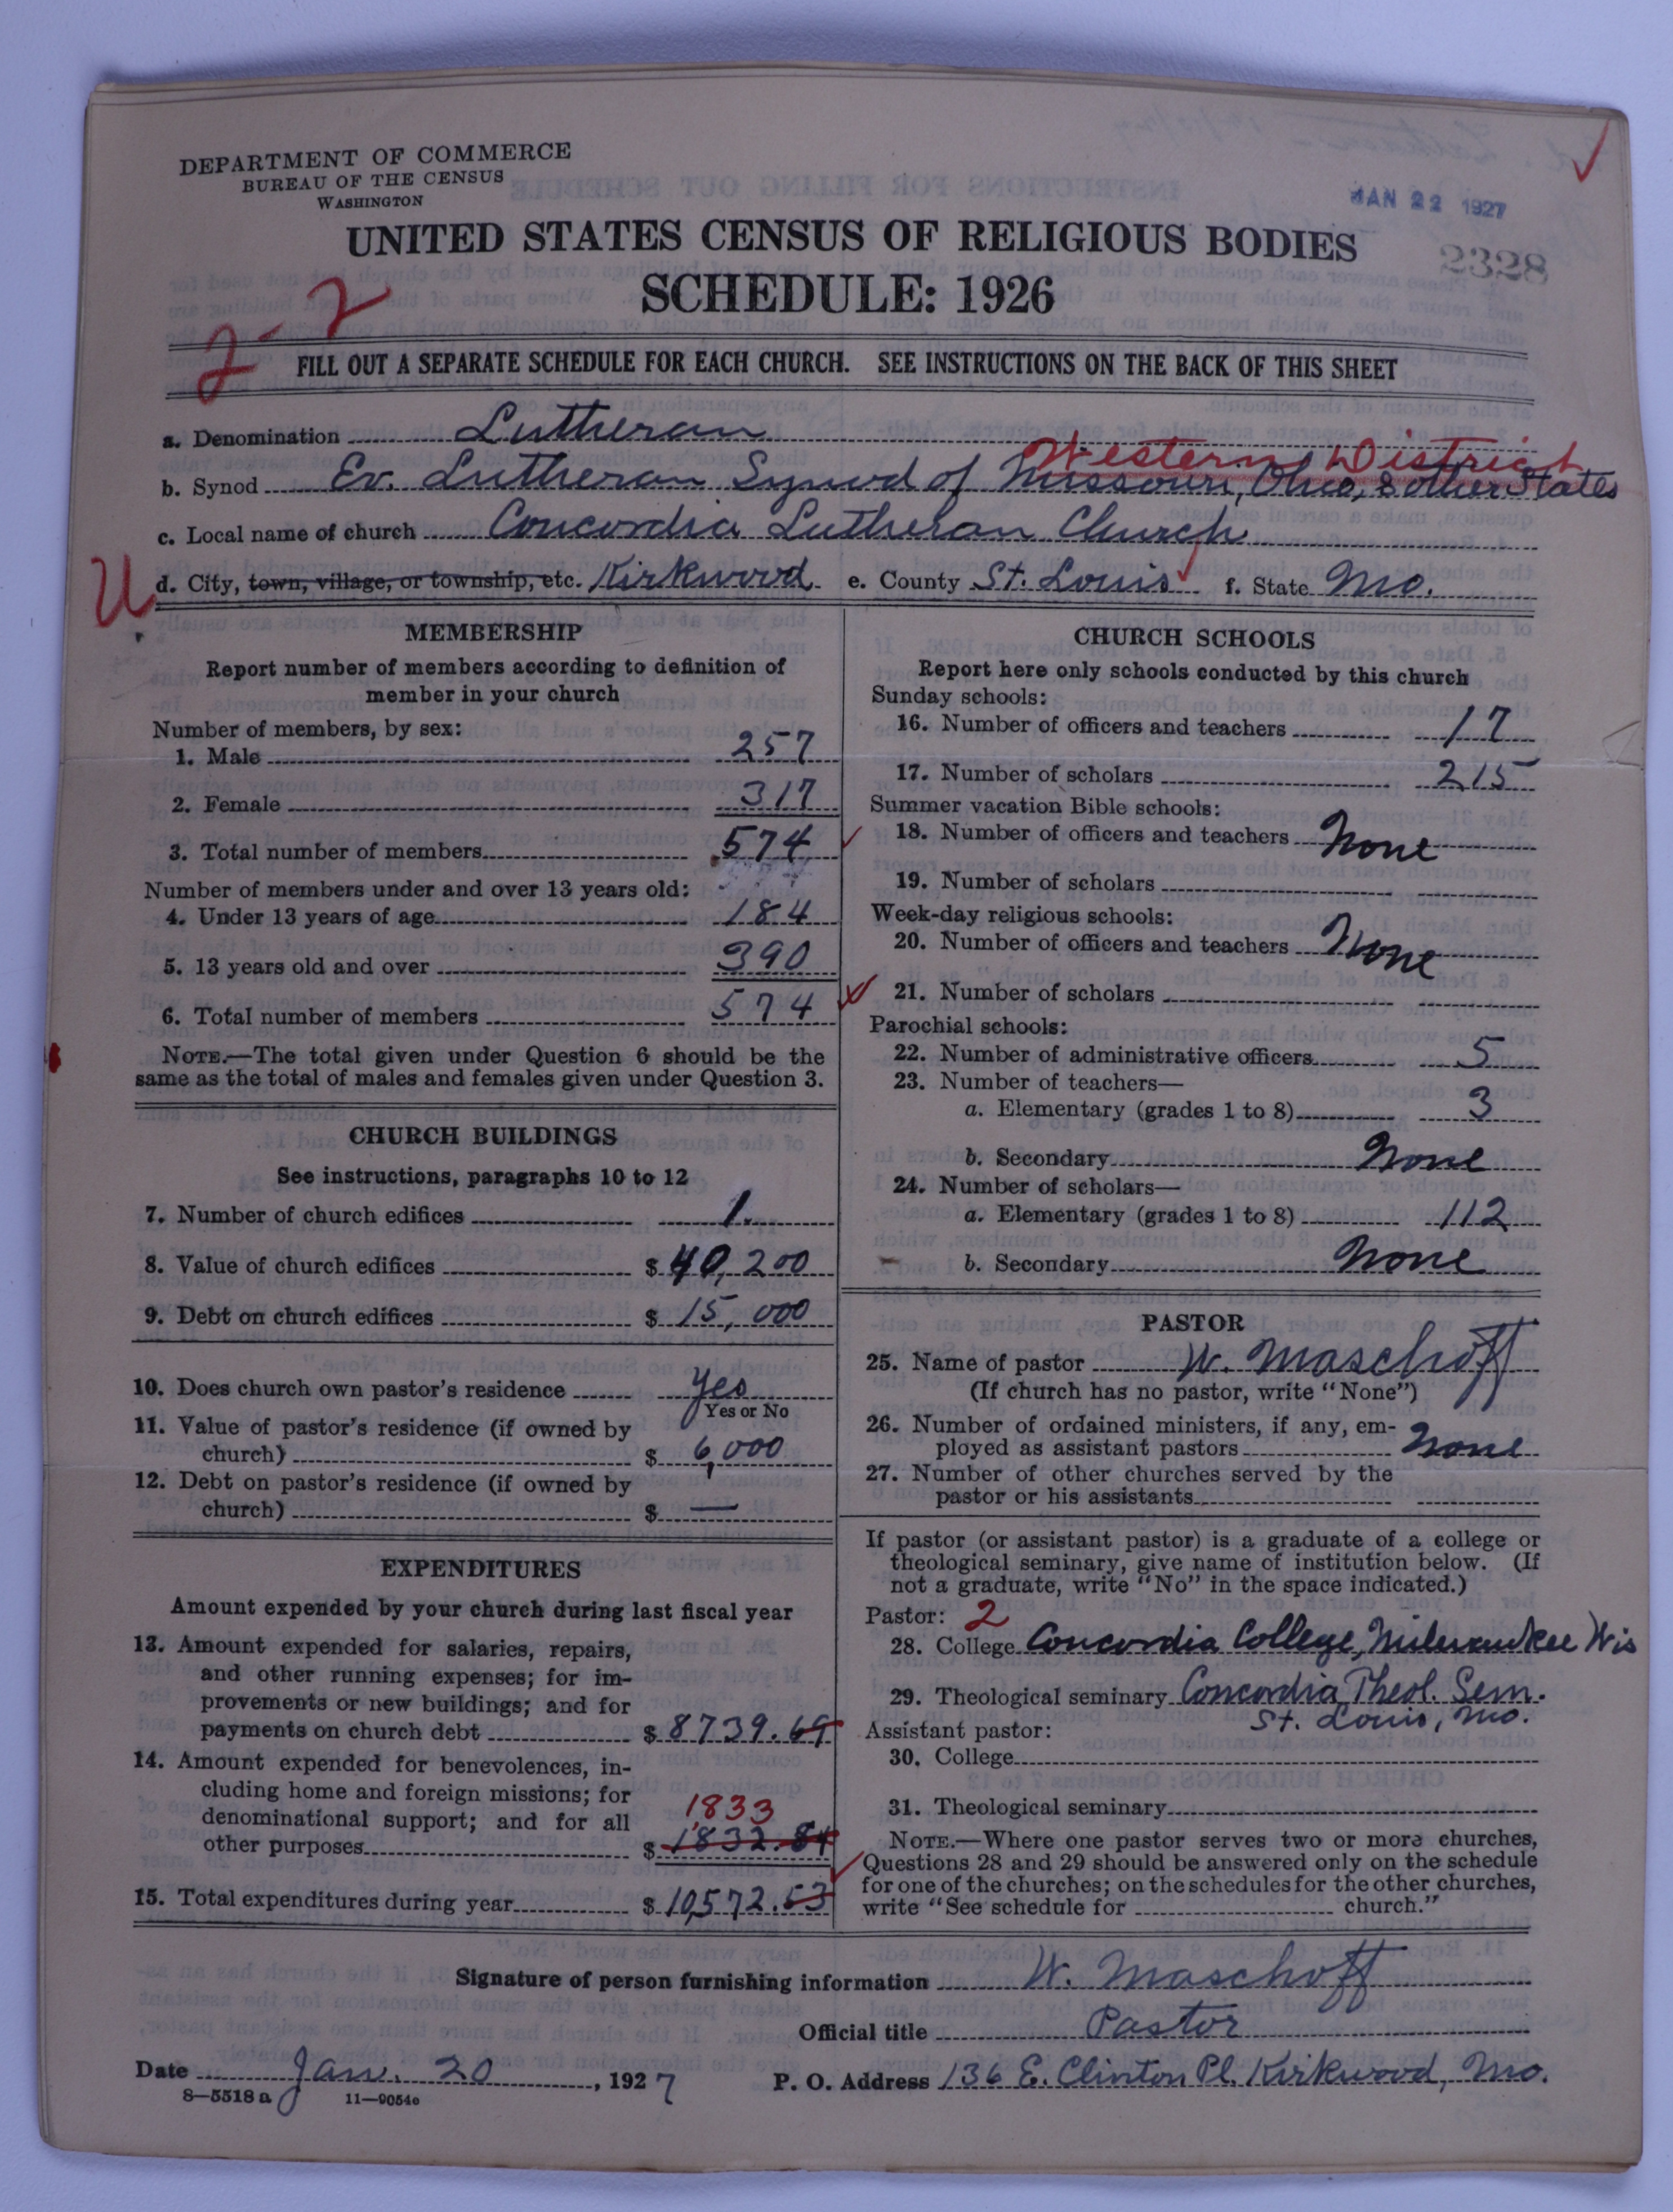 DEPARTMENT OF COMMERCE
BUREAU OF THE CENSUS
WASHINGTON
JAN 22 1927
2328
UNITED STATES CENSUS OF RELIGIOUS BODIES
SCHEDULE: 1926
2-2
FILL OUT A SEPARATE SCHEDULE FOR EACH CHURCH. SEE INSTRUCTIONS ON THE BACK OF THIS SHEET
a. Denomination Lutheran
Western District
b. Synod Ev. Lutheran Synod of Missouri, Ohio, & other States
c. Local name of church Concordia Lutheran Church
U d. City, town, village, or township, etc. Kirkwood e. County St. Louis f. State Mo.
MEMBERSHIP
Report number of members according to definition of
member in your church
Number of members, by sex:
1. Male 257
2. Female 317
3. Total number of members 574
Number of members under and over 13 years old:
4. Under 13 years of age 184
5. 13 years old and over 390
6. Total number of members 574
NOTE.—The total given under Question 6 should be the
same as the total of males and females given under Question 3.
CHURCH BUILDINGS
See instructions, paragraphs 10 to 12
7. Number of church edifices 1.
8. Value of church edifices $ 40,200
9. Debt on church edifices $ 15,000
10. Does church own pastor's residence yes
Yes or No
11. Value of pastor's residence (if owned by
church) $ 6,000
12. Debt on pastor's residence (if owned by
church) $ —
EXPENDITURES
Amount expended by your church during last fiscal year
13. Amount expended for salaries, repairs,
and other running expenses; for im-
provements or new buildings; and for
payments on church debt $ 8739.69
14. Amount expended for benevolences, in-
cluding home and foreign missions; for
denominational support; and for all
1833
other purposes $ 1832.84
15. Total expenditures during year $ 10,572.53
CHURCH SCHOOLS
Report here only schools conducted by this church
Sunday schools:
16. Number of officers and teachers 17
17. Number of scholars 215
Summer vacation Bible schools:
18. Number of officers and teachers None
19. Number of scholars
Week-day religious schools:
20. Number of officers and teachers None
21. Number of scholars
Parochial schools:
22. Number of administrative officers 5
23. Number of teachers—
a. Elementary (grades 1 to 8) 3
b. Secondary None
24. Number of scholars—
a. Elementary (grades 1 to 8) 112
b. Secondary None
PASTOR
25. Name of pastor W. Maschoff
(If church has no pastor, write "None")
26. Number of ordained ministers, if any, em-
ployed as assistant pastors None
27. Number of other churches served by the
pastor or his assistants
If pastor (or assistant pastor) is a graduate of a college or
theological seminary, give name of institution below. (If
not a graduate, write "No" in the space indicated.)
Pastor: 2
28. College Concordia College, Milwaukee Wis
29. Theological seminary Concordia Theol. Sem.
St. Louis, Mo.
Assistant pastor:
30. College
31. Theological seminary
NOTE.—Where one pastor serves two or more churches,
Questions 28 and 29 should be answered only on the schedule
for one of the churches; on the schedules for the other churches,
write "See schedule for church."
Signature of person furnishing information W. Maschoff
Official title Pastor
Date Jan. 20, 1927 P. O. Address 136 E. Clinton Pl. Kirkwood, Mo.
8—5518a 11—9054c